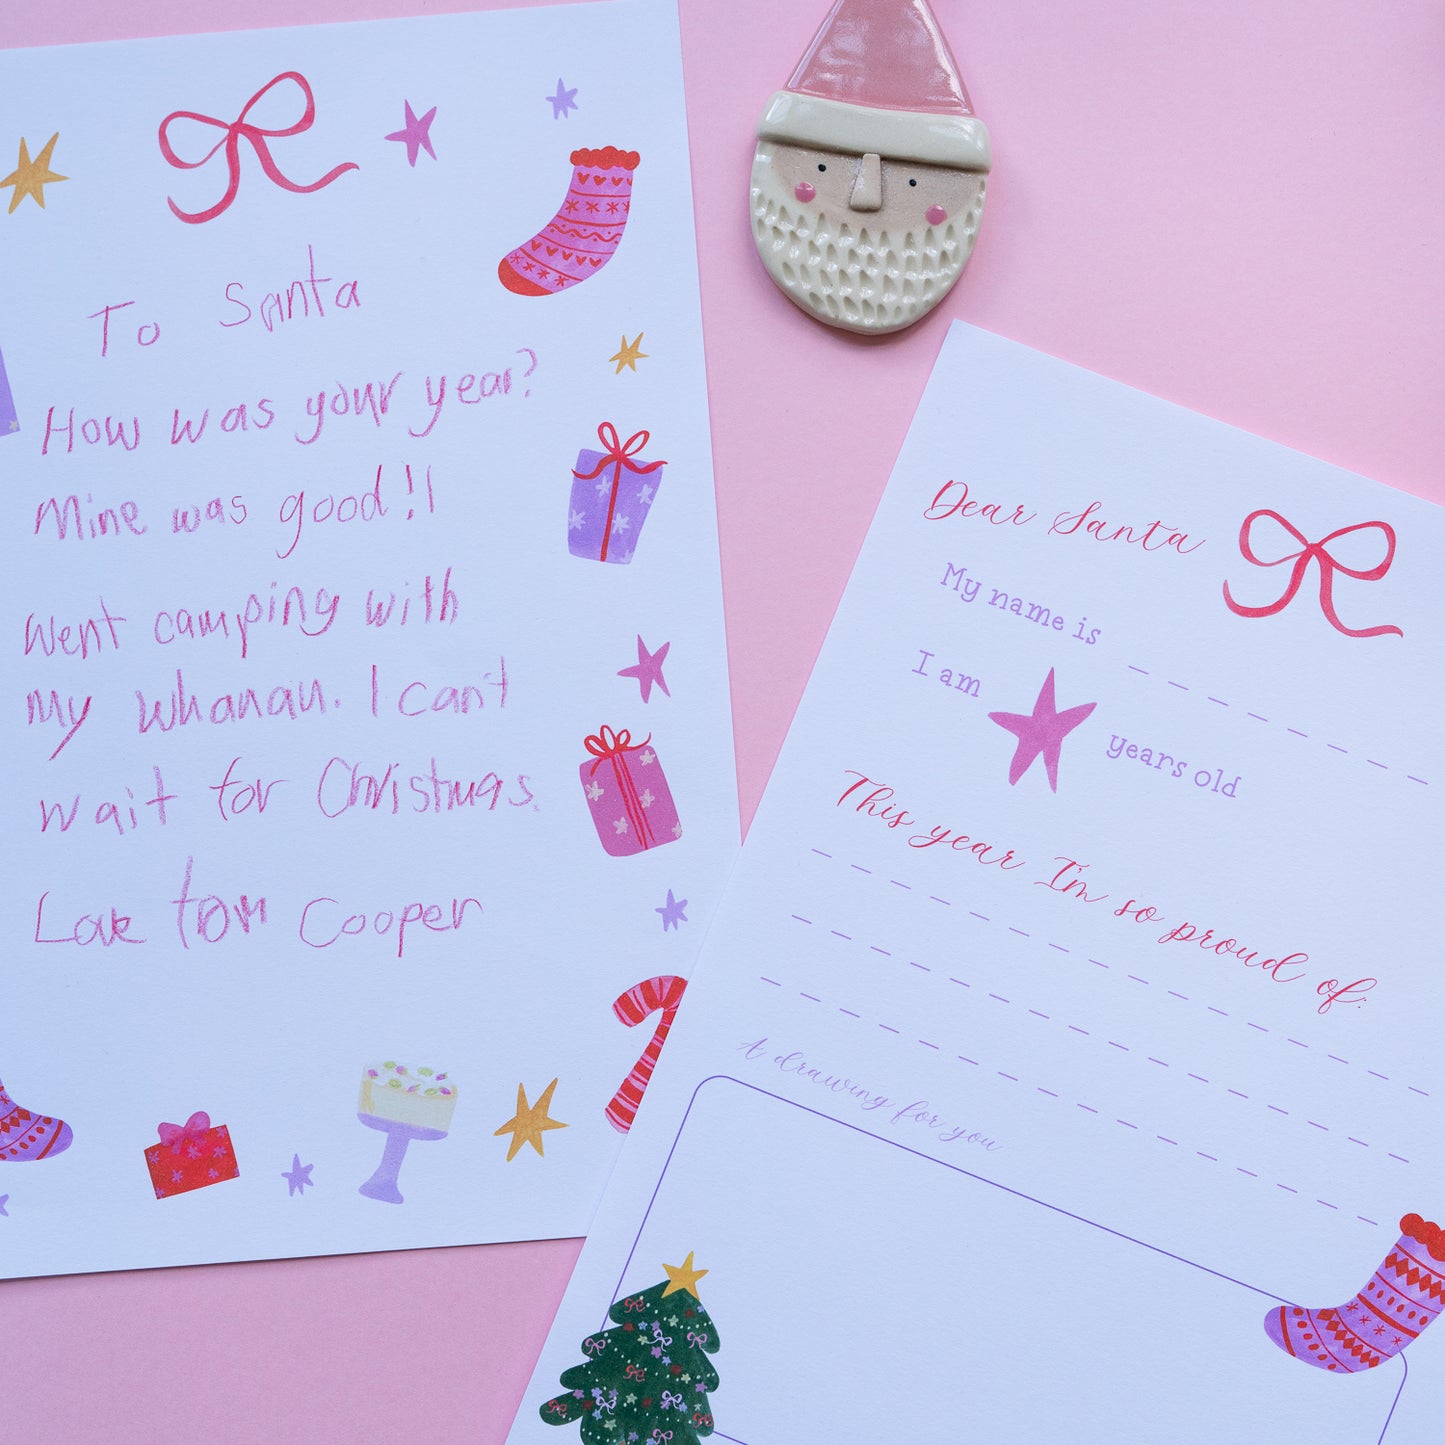 To Santa
How was your year?
Mine was good! I
Went camping with
my whanau. I can't
wait for Christmas.
Love from Cooper
Dear Santa
My name is
I am years old
This year I'm so proud of:
A drawing for you